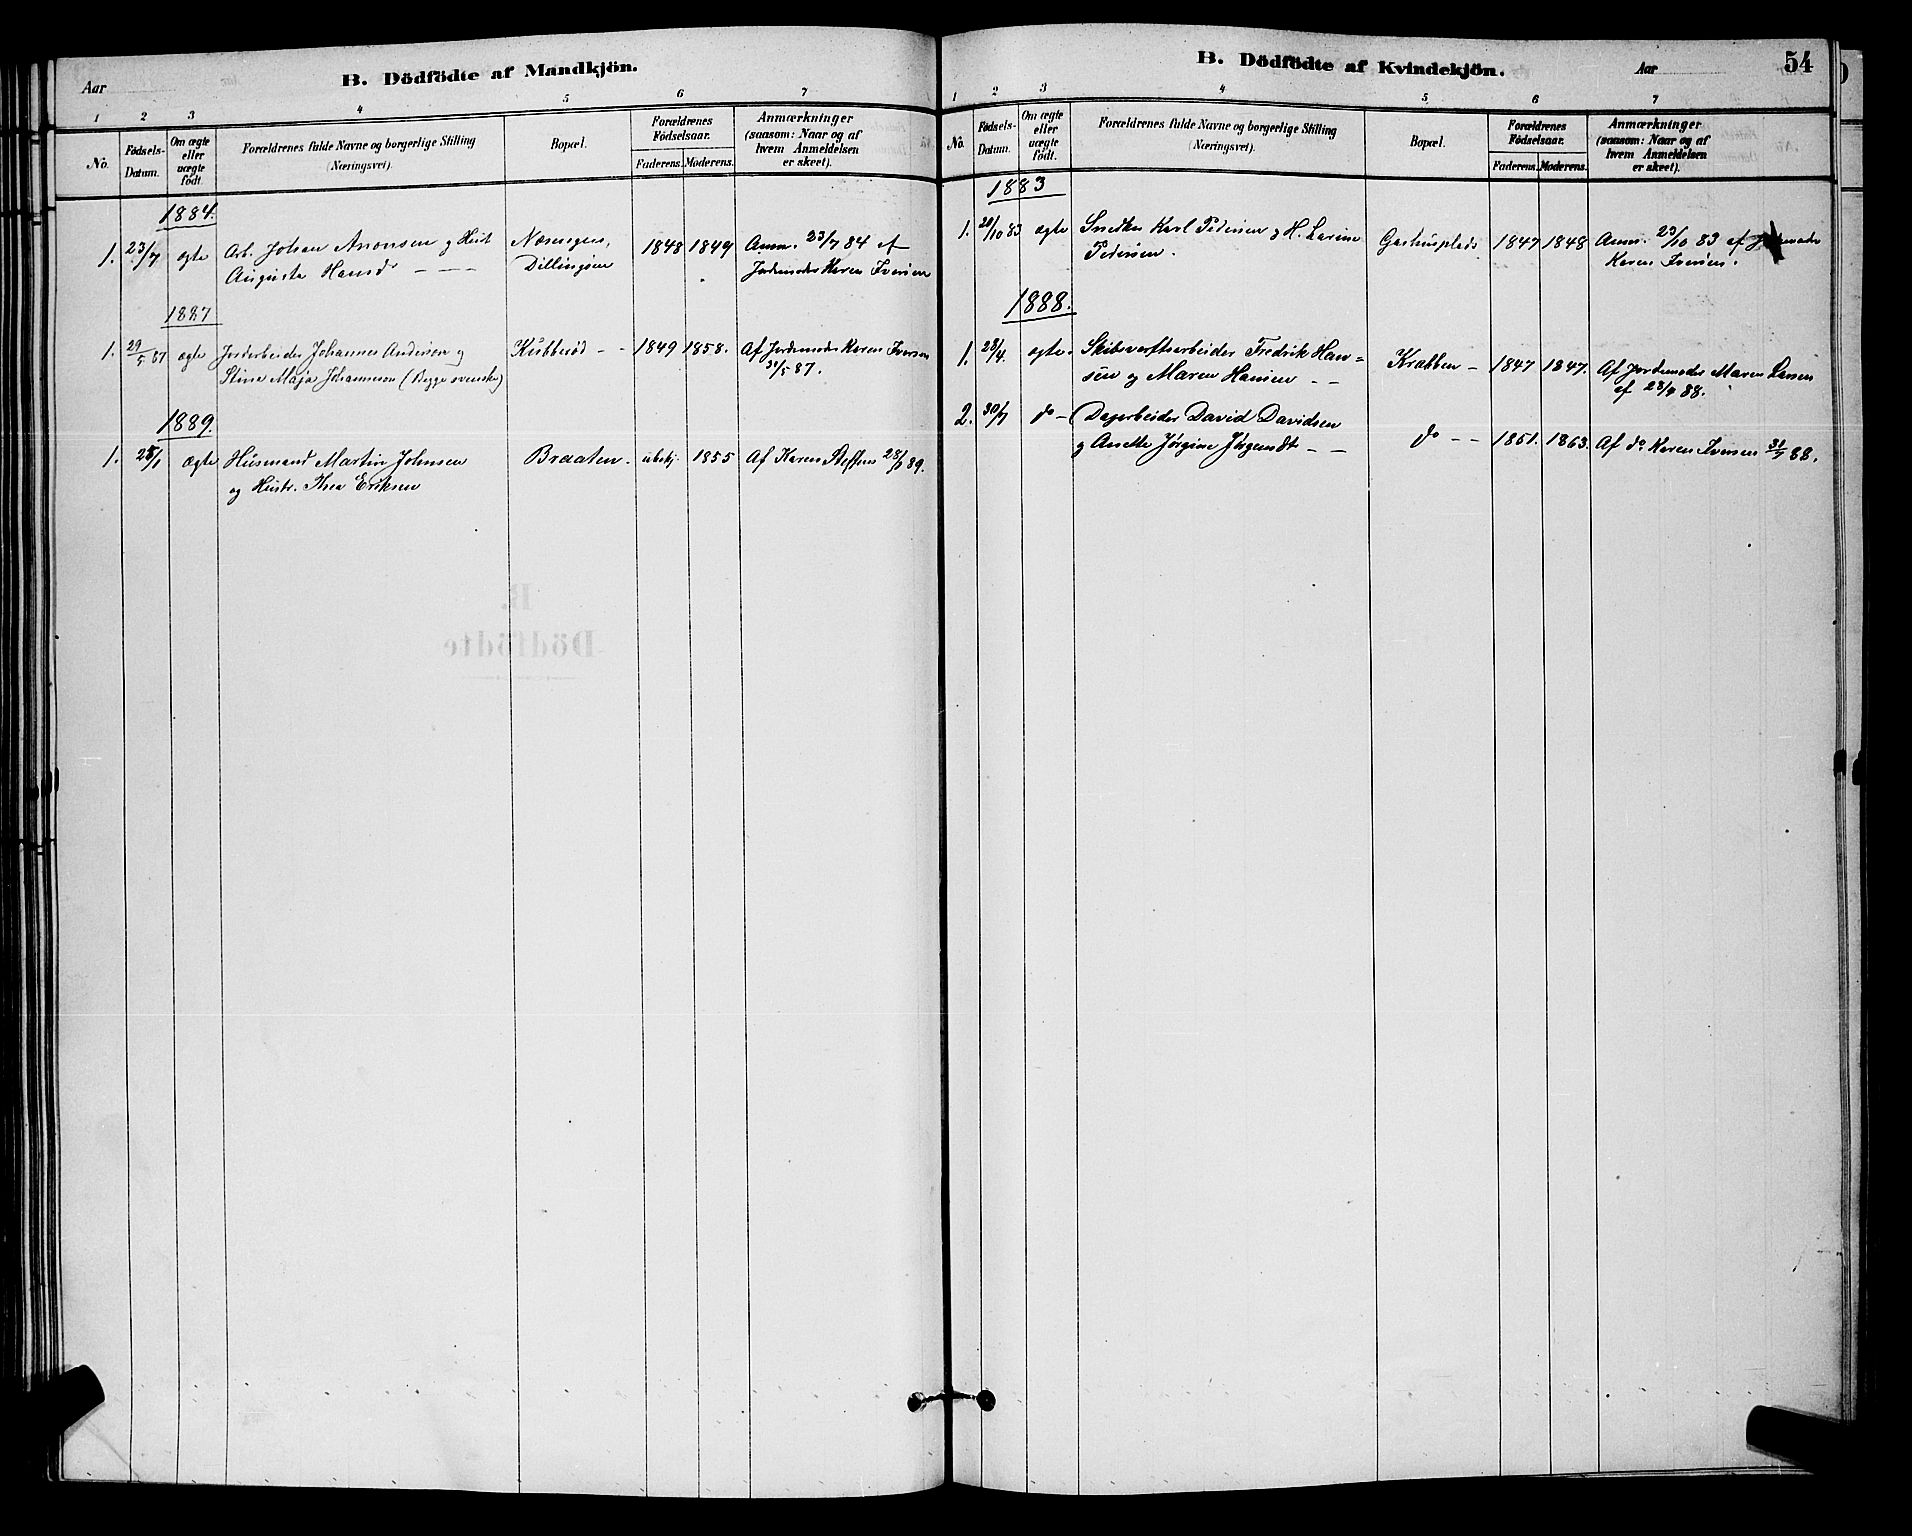 Aar
B. Dödfödte af Mandkjön.
1 2 3 4 5 6 7
No.
Födsels-
Datum.
Om ægte
eller
uægte
födt.
Forældrenes fulde Navne og borgerlige Stilling
(Næringsvei).
Bopæl.
Forældrenes
Födselsaar.
Faderens. Moderens.
Anmærkninger
(saasom: Naar og af
hvem Anmeldelsen
er skeet).
1884.
1. 23/7 ægte Arb. Johan Aronsen og Hust 1848 1849 Anm. 23/7 84 af
Augusta Hansd — — Dillingøen Jordemoder Karen Iversen
1887
1. 29/5 87 ægte Jordarbeider Johannes Andersen og Kubberød - - 1849 1858. Af Jordemoder Karen Iversen
Stina Maja Johannesen (Begge svenske) 31/5 87.
1889.
1. 28/1 Ægte Husmand Martin Johnsen Braaten. ubekj. 1855 Af Karen Steffens 89.
og Hustr. Thea Eriksen
B.
Dödfödte
B. Dödfödte af Kvindekjön.
Aar
54
1 2 3 4 5 6 7
No.
Födsels-
Datum.
Om ægte
eller
uægte
födt.
Forældrenes fulde Navne og borgerlige Stilling
(Næringsvei).
Bopæl.
Forældrenes
Födselsaar.
Faderens. Moderens.
Anmærkninger
(saasom: Naar og af
hvem Anmeldelsen
er skeet).
1883
1. 20/10 83 ægte Snedker Karl Pedersen og H. Larine 1847 1848 Anm. 23/10 83 af Jordemoder
Pedersen. Karen Iversen.
1888.
1. 23/4. ægte. Skibsverftsarbeider Fredrik Han=
sen og Maren Hansen - - Krabben - 1847 1847. Af Jordemoder Maren Larsen
af 88.
2. 30/7 do - Dagarbeider David Davidsen
og Anette Jørgine Jørgendt - - do - - 1851. 1863. Af do Karen Iversen 31/7 88.